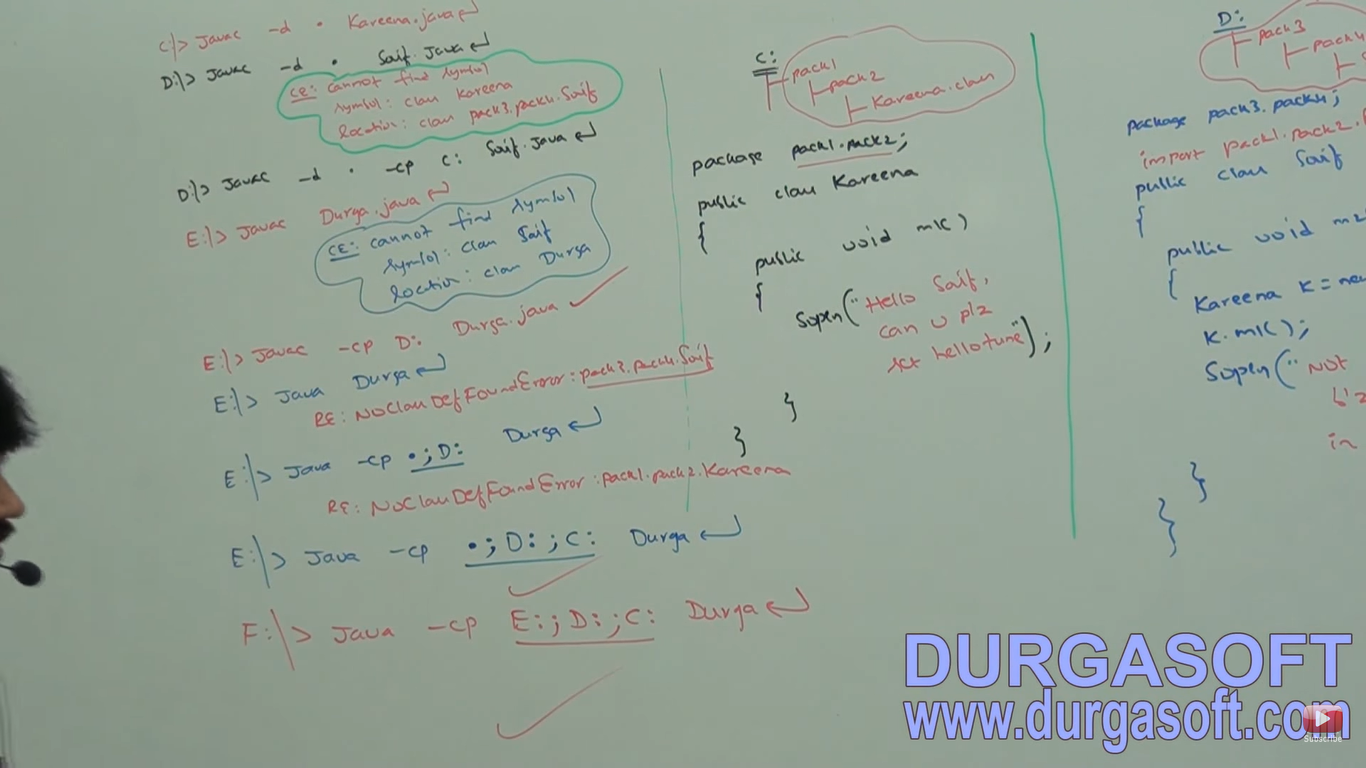 C:\> Javac -d . Kareena.java
D:\> Javac -d . Saif.Java
CE: cannot find symbol
symbol: class Kareena
location: class pack3.pack4.Saif
D:\> Javac -d . -cp C: Saif.Java
E:\> Javac Durga.java
CE: cannot find symbol
symbol: class Saif
location: class Durga
E:\> Javac -cp D: Durga.java
E:\> Java Durga
RE: NoClassDefFoundError: pack3.pack4.Saif
E:\> Java -cp .;D: Durga
RE: NoClassDefFoundError: pack1.pack2.Kareena
E:\> Java -cp .;D:;C: Durga
F:\> Java -cp E:;D:;C: Durga
C:
pack1
pack2
Kareena.class
package pack1.pack2;
public class Kareena
{
public void m1()
{
Sopln("Hello Saif,
can u plz
set hellotune");
}
}
D:
pack3
pack4
package pack3.pack4;
import pack1.pack2.
public class Saif
{
public void m2
{
Kareena K = new
K.m1();
Sopln("Not
in
}
}
DURGASOFT
www.durgasoft.com
Subscribe